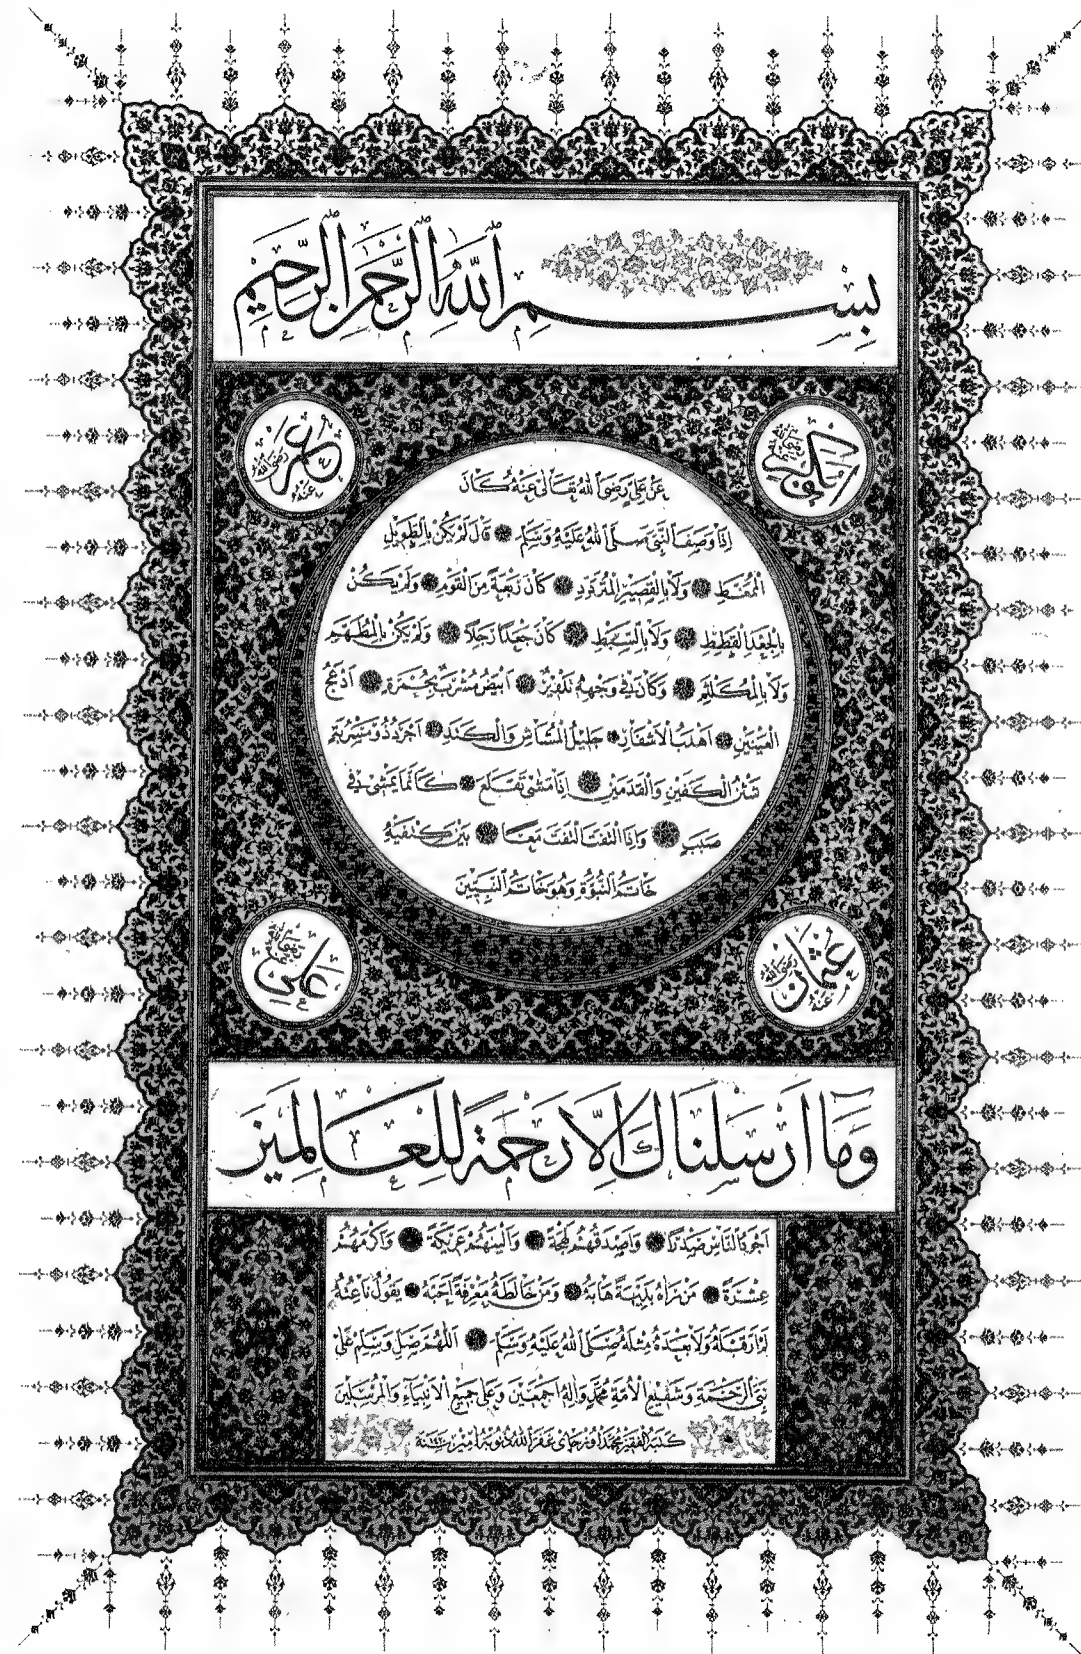 بِسْمِ ٱللّٰهِ ٱلرَّحْمٰنِ ٱلرَّحِيمِ
ابوبكر رضى الله عنه
عمر رضى الله عنه
عَنْ عَلِيٍّ رَضِيَ ٱللّٰهُ تَعَالٰى عَنْهُ كَانَ
اِذَا وَصَفَ ٱلنَّبِيَّ صَلَّى ٱللّٰهُ عَلَيْهِ وَسَلَّمَ قَالَ لَمْ يَكُنْ بِالطَّوِيلِ
الْمُمَّغِطِ وَلَا بِالْقَصِيرِ الْمُتَرَدِّدِ كَانَ رَبْعَةً مِنَ الْقَوْمِ وَلَمْ يَكُنْ
بِالْجَعْدِ الْقَطِطِ وَلَا بِالسَّبِطِ كَانَ جَعْدًا رَجِلًا وَلَمْ يَكُنْ بِالْمُطَهَّمِ
وَلَا بِالْمُكَلْثَمِ وَكَانَ فِي وَجْهِهِ تَدْوِيرٌ اَبْيَضُ مُشْرَبٌ بِحُمْرَةٍ اَدْعَجُ
الْعَيْنَيْنِ اَهْدَبُ الْاَشْفَارِ جَلِيلُ الْمُشَاشِ وَالْكَتَدِ اَجْرَدُ ذُو مَسْرُبَةٍ
شَثْنُ الْكَفَّيْنِ وَالْقَدَمَيْنِ اِذَا مَشٰى تَقَلَّعَ كَاَنَّمَا يَمْشِي فِي
صَبَبٍ وَاِذَا الْتَفَتَ الْتَفَتَ مَعًا بَيْنَ كَتِفَيْهِ
خَاتَمُ النُّبُوَّةِ وَهُوَ خَاتَمُ النَّبِيِّينَ
عثمان رضى الله عنه
على رضى الله عنه
وَمَا اَرْسَلْنَاكَ اِلَّا رَحْمَةً لِلْعَالَمِينَ
اَجْوَدُ النَّاسِ صَدْرًا وَاَصْدَقُهُمْ لَهْجَةً وَاَلْيَنُهُمْ عَرِيكَةً وَاَكْرَمُهُمْ
عِشْرَةً مَنْ رَاٰهُ بَدِيهَةً هَابَهُ وَمَنْ خَالَطَهُ مَعْرِفَةً اَحَبَّهُ يَقُولُ نَاعِتُهُ
لَمْ اَرَ قَبْلَهُ وَلَا بَعْدَهُ مِثْلَهُ صَلَّى ٱللّٰهُ عَلَيْهِ وَسَلَّمَ اَللّٰهُمَّ صَلِّ وَسَلِّمْ عَلٰى
نَبِيِّ الرَّحْمَةِ وَشَفِيعِ الْاُمَّةِ مُحَمَّدٍ وَاٰلِهِ اَجْمَعِينَ وَعَلٰى جَمِيعِ الْاَنْبِيَاءِ وَالْمُرْسَلِينَ
كتبه الفقير محمد اوزجاى غفر الله ذنوبه آمين سنة